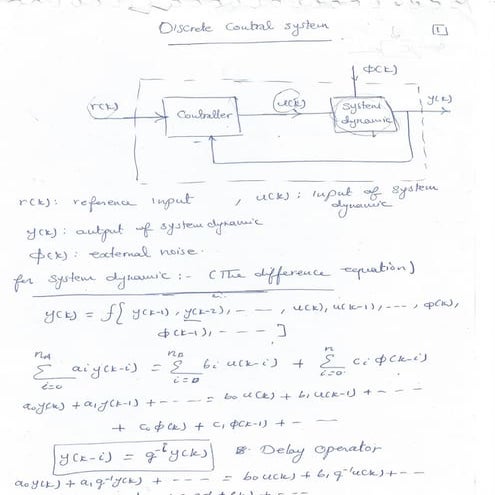 Discrete Control system
1
ϕ(k)
r(k)
Controller
u(k)
System
dynamic
y(k)
r(k): reference input , u(k): input of system
dynamic
y(k): output of system dynamic
ϕ(k): external noise.
for system dynamic :- (The difference equation)
y(k) = f[ y(k-1), y(k-2), - - - , u(k), u(k-1), ---, ϕ(k),
ϕ(k-1), - - - ]
∑ i=0 nA ai y(k-i) = ∑ i=0 nB bi u(k-i) + ∑ i=0 n ci ϕ(k-i)
a0y(k) + a1y(k-1) + - - - = b0u(k) + b1u(k-1) + - - -
+ c0ϕ(k) + c1ϕ(k-1) + - -
y(k-i) = q^-i y(k) Delay Operator
a0y(k) + a1q^-1y(k) + - - - = b0u(k) + b1q^-1u(k) + - -